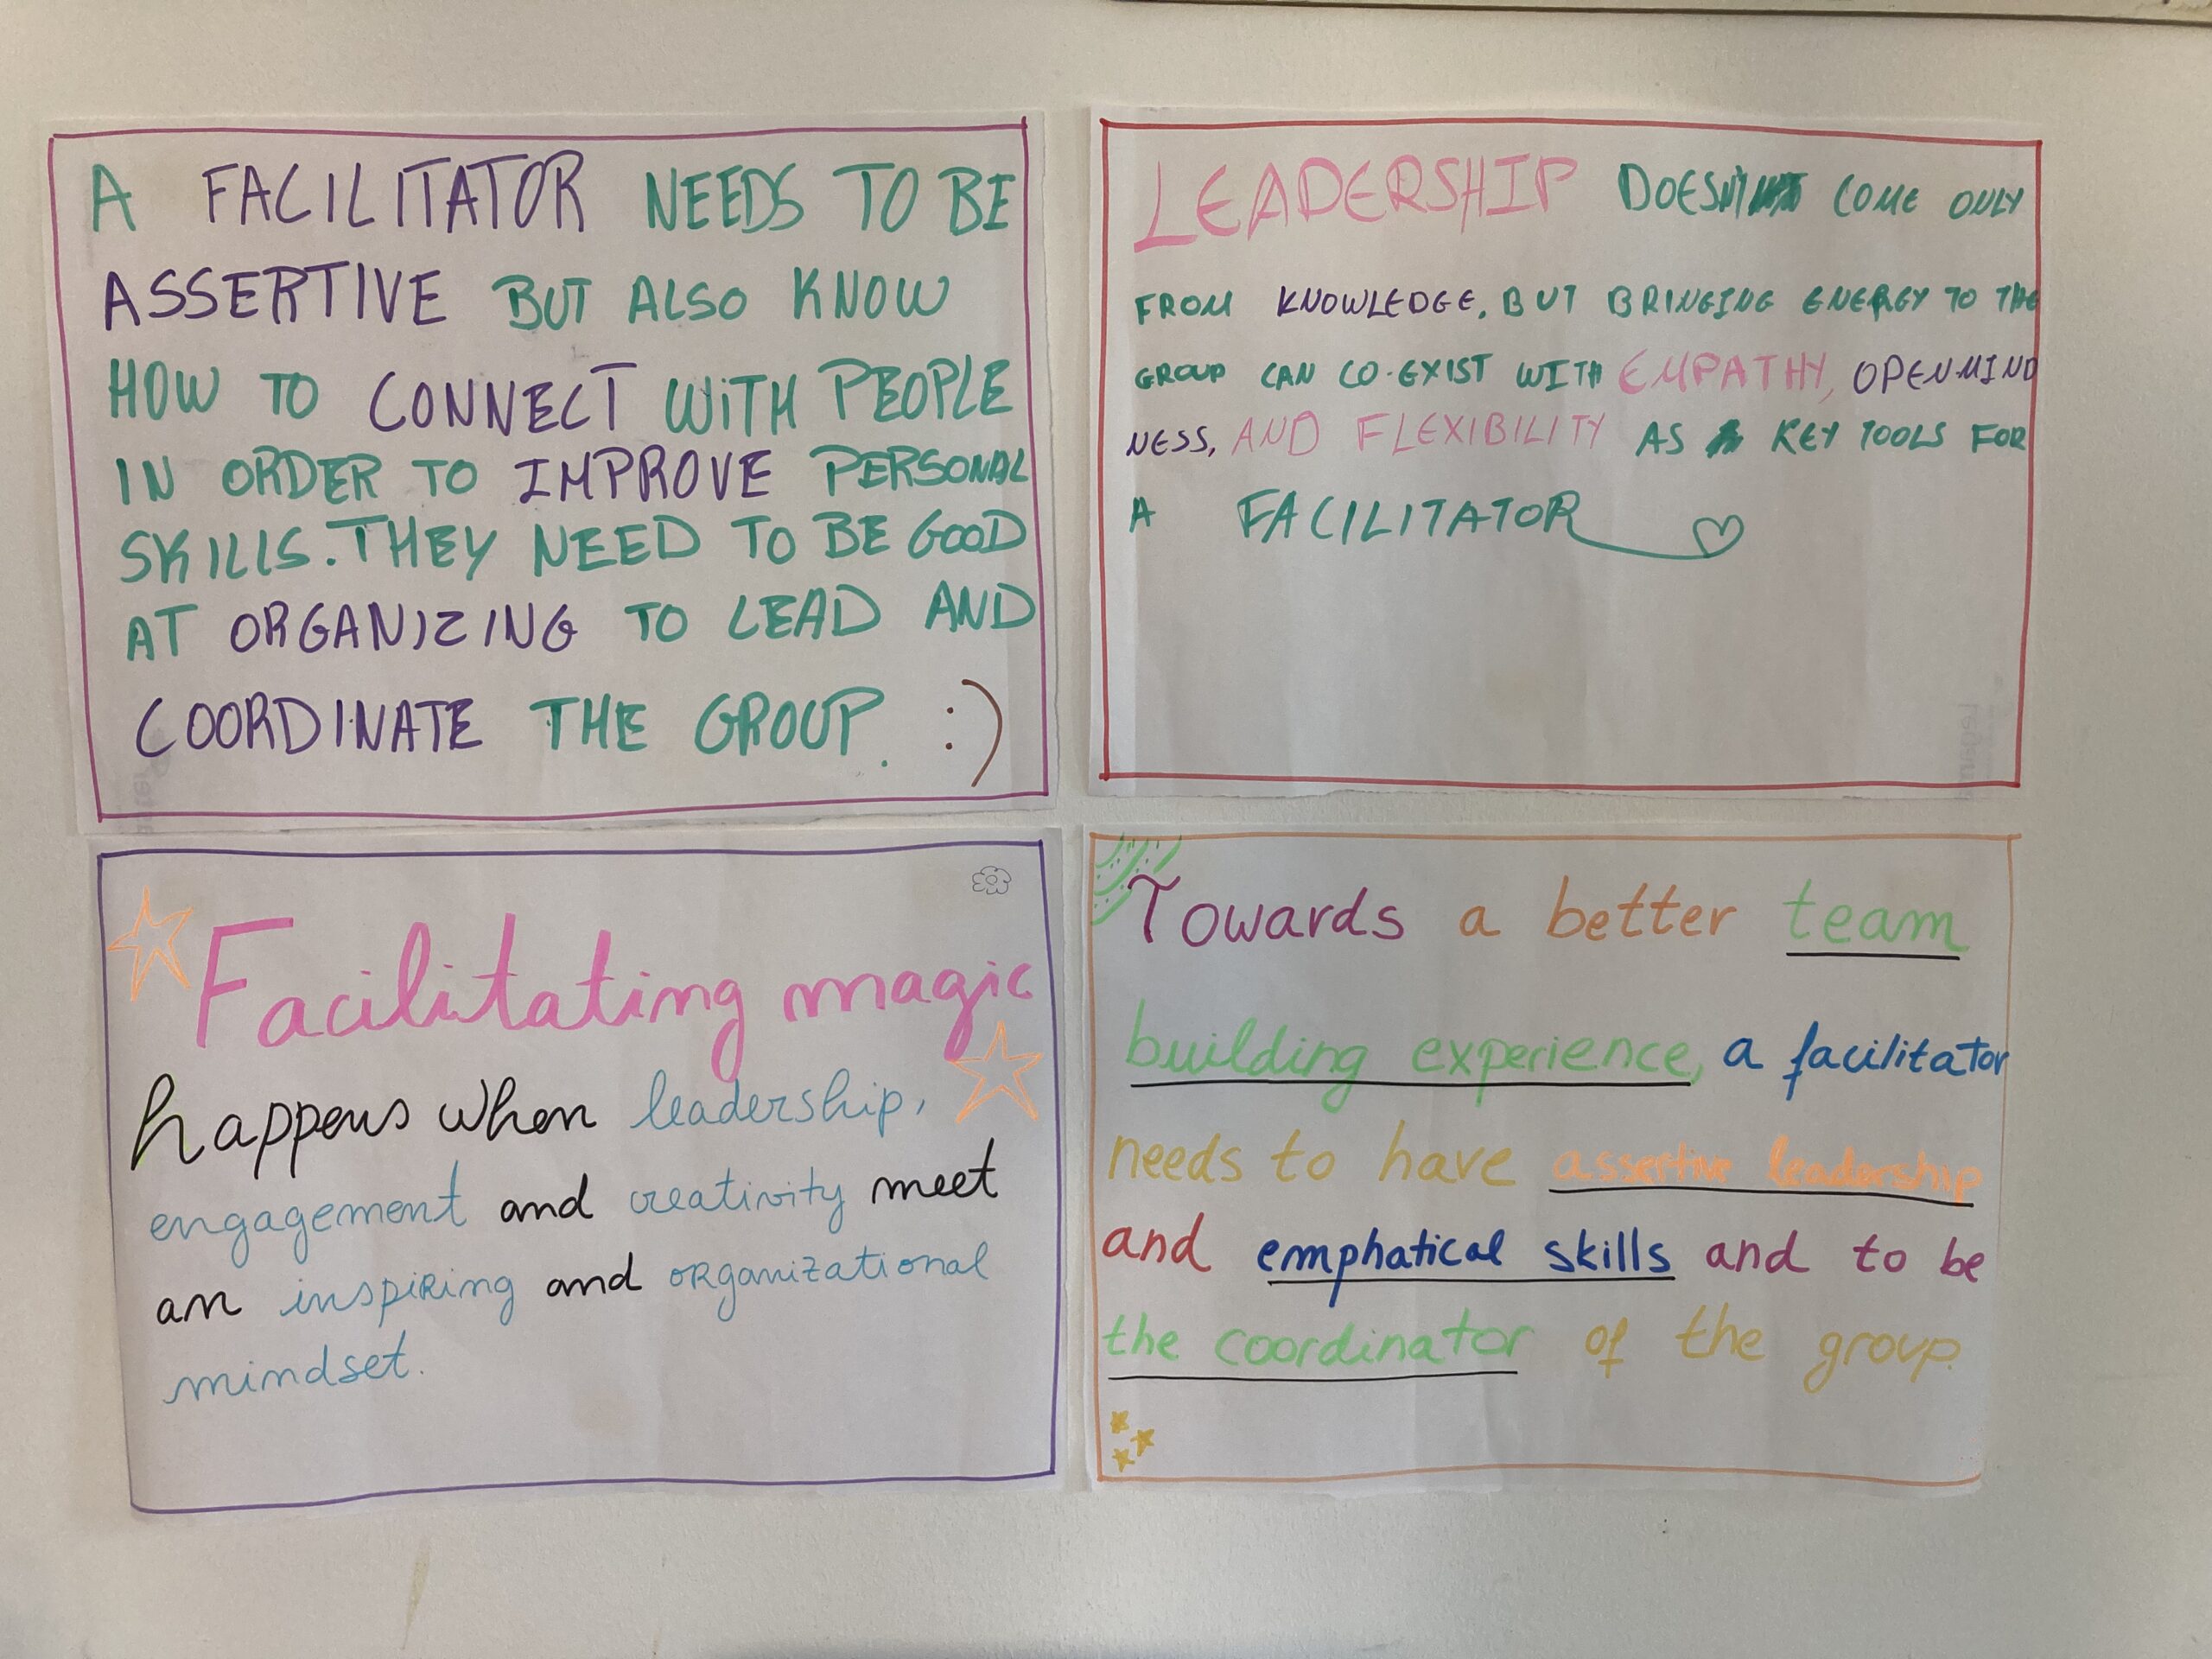 A FACILITATOR NEEDS TO BE
ASSERTIVE BUT ALSO KNOW
HOW TO CONNECT WITH PEOPLE
IN ORDER TO IMPROVE PERSONAL
SKILLS. THEY NEED TO BE GOOD
AT ORGANIZING TO LEAD AND
COORDINATE THE GROUP. :)
LEADERSHIP DOESN'T COME ONLY
FROM KNOWLEDGE, BUT BRINGING ENERGY TO THE
GROUP CAN CO-EXIST WITH EMPATHY, OPENMIND
NESS, AND FLEXIBILITY AS KEY TOOLS FOR
A FACILITATOR
Facilitating magic
happens when leadership,
engagement and creativity meet
an inspiring and organizational
mindset.
Towards a better team
building experience, a facilitator
needs to have assertive leadership
and emphatical skills and to be
the coordinator of the group.